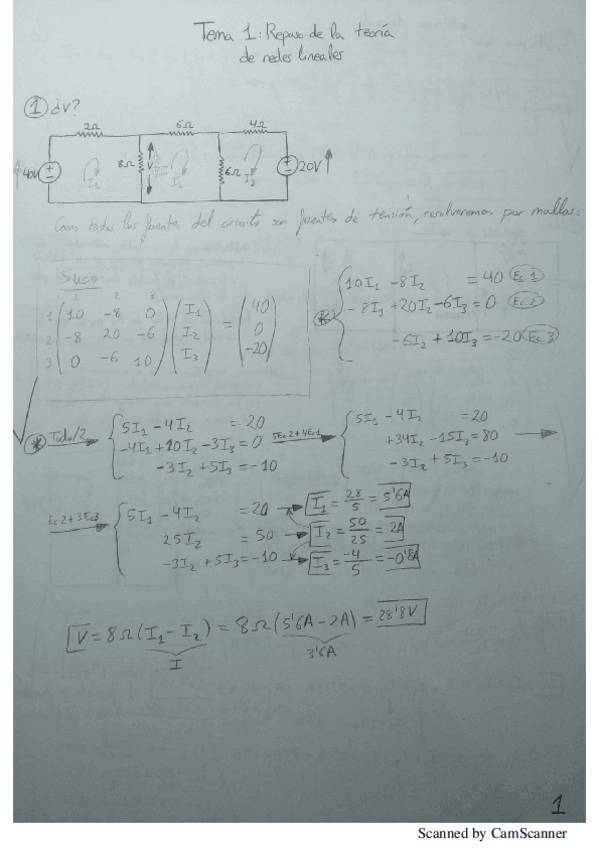 Tema 1: Repaso de la teoría
de redes lineales
1 ¿V?
2Ω 6Ω 4Ω
40V I1 8Ω V I2 6Ω I3 20V
Como todas las fuentes del circuito son fuentes de tensión, resolveremos por mallas:
1 2 3
1 10 -8 0 I1 40
2 -8 20 -6 I2 = 0
3 0 -6 10 I3 -20
10I1 -8I2 = 40 Ec.1
-8I1 +20I2 -6I3 = 0 Ec.2
-6I2 + 10I3 = -20 Ec.3
* Todo/2
5I1 - 4I2 = 20
-4I1 + 10I2 - 3I3 = 0
-3I2 + 5I3 = -10
5Ec2+4Ec1
5I1 - 4I2 = 20
+34I2 - 15I3 = 80
-3I2 + 5I3 = -10
Ec2+3Ec3
5I1 - 4I2 = 20 → I1 = 28/5 = 5'6A
25I2 = 50 → I2 = 50/25 = 2A
-3I2 + 5I3 = -10 → I3 = -4/5 = -0'8A
V = 8Ω(I1 - I2) = 8Ω(5'6A - 2A) = 28'8V
I 3'6A
1
Scanned by CamScanner